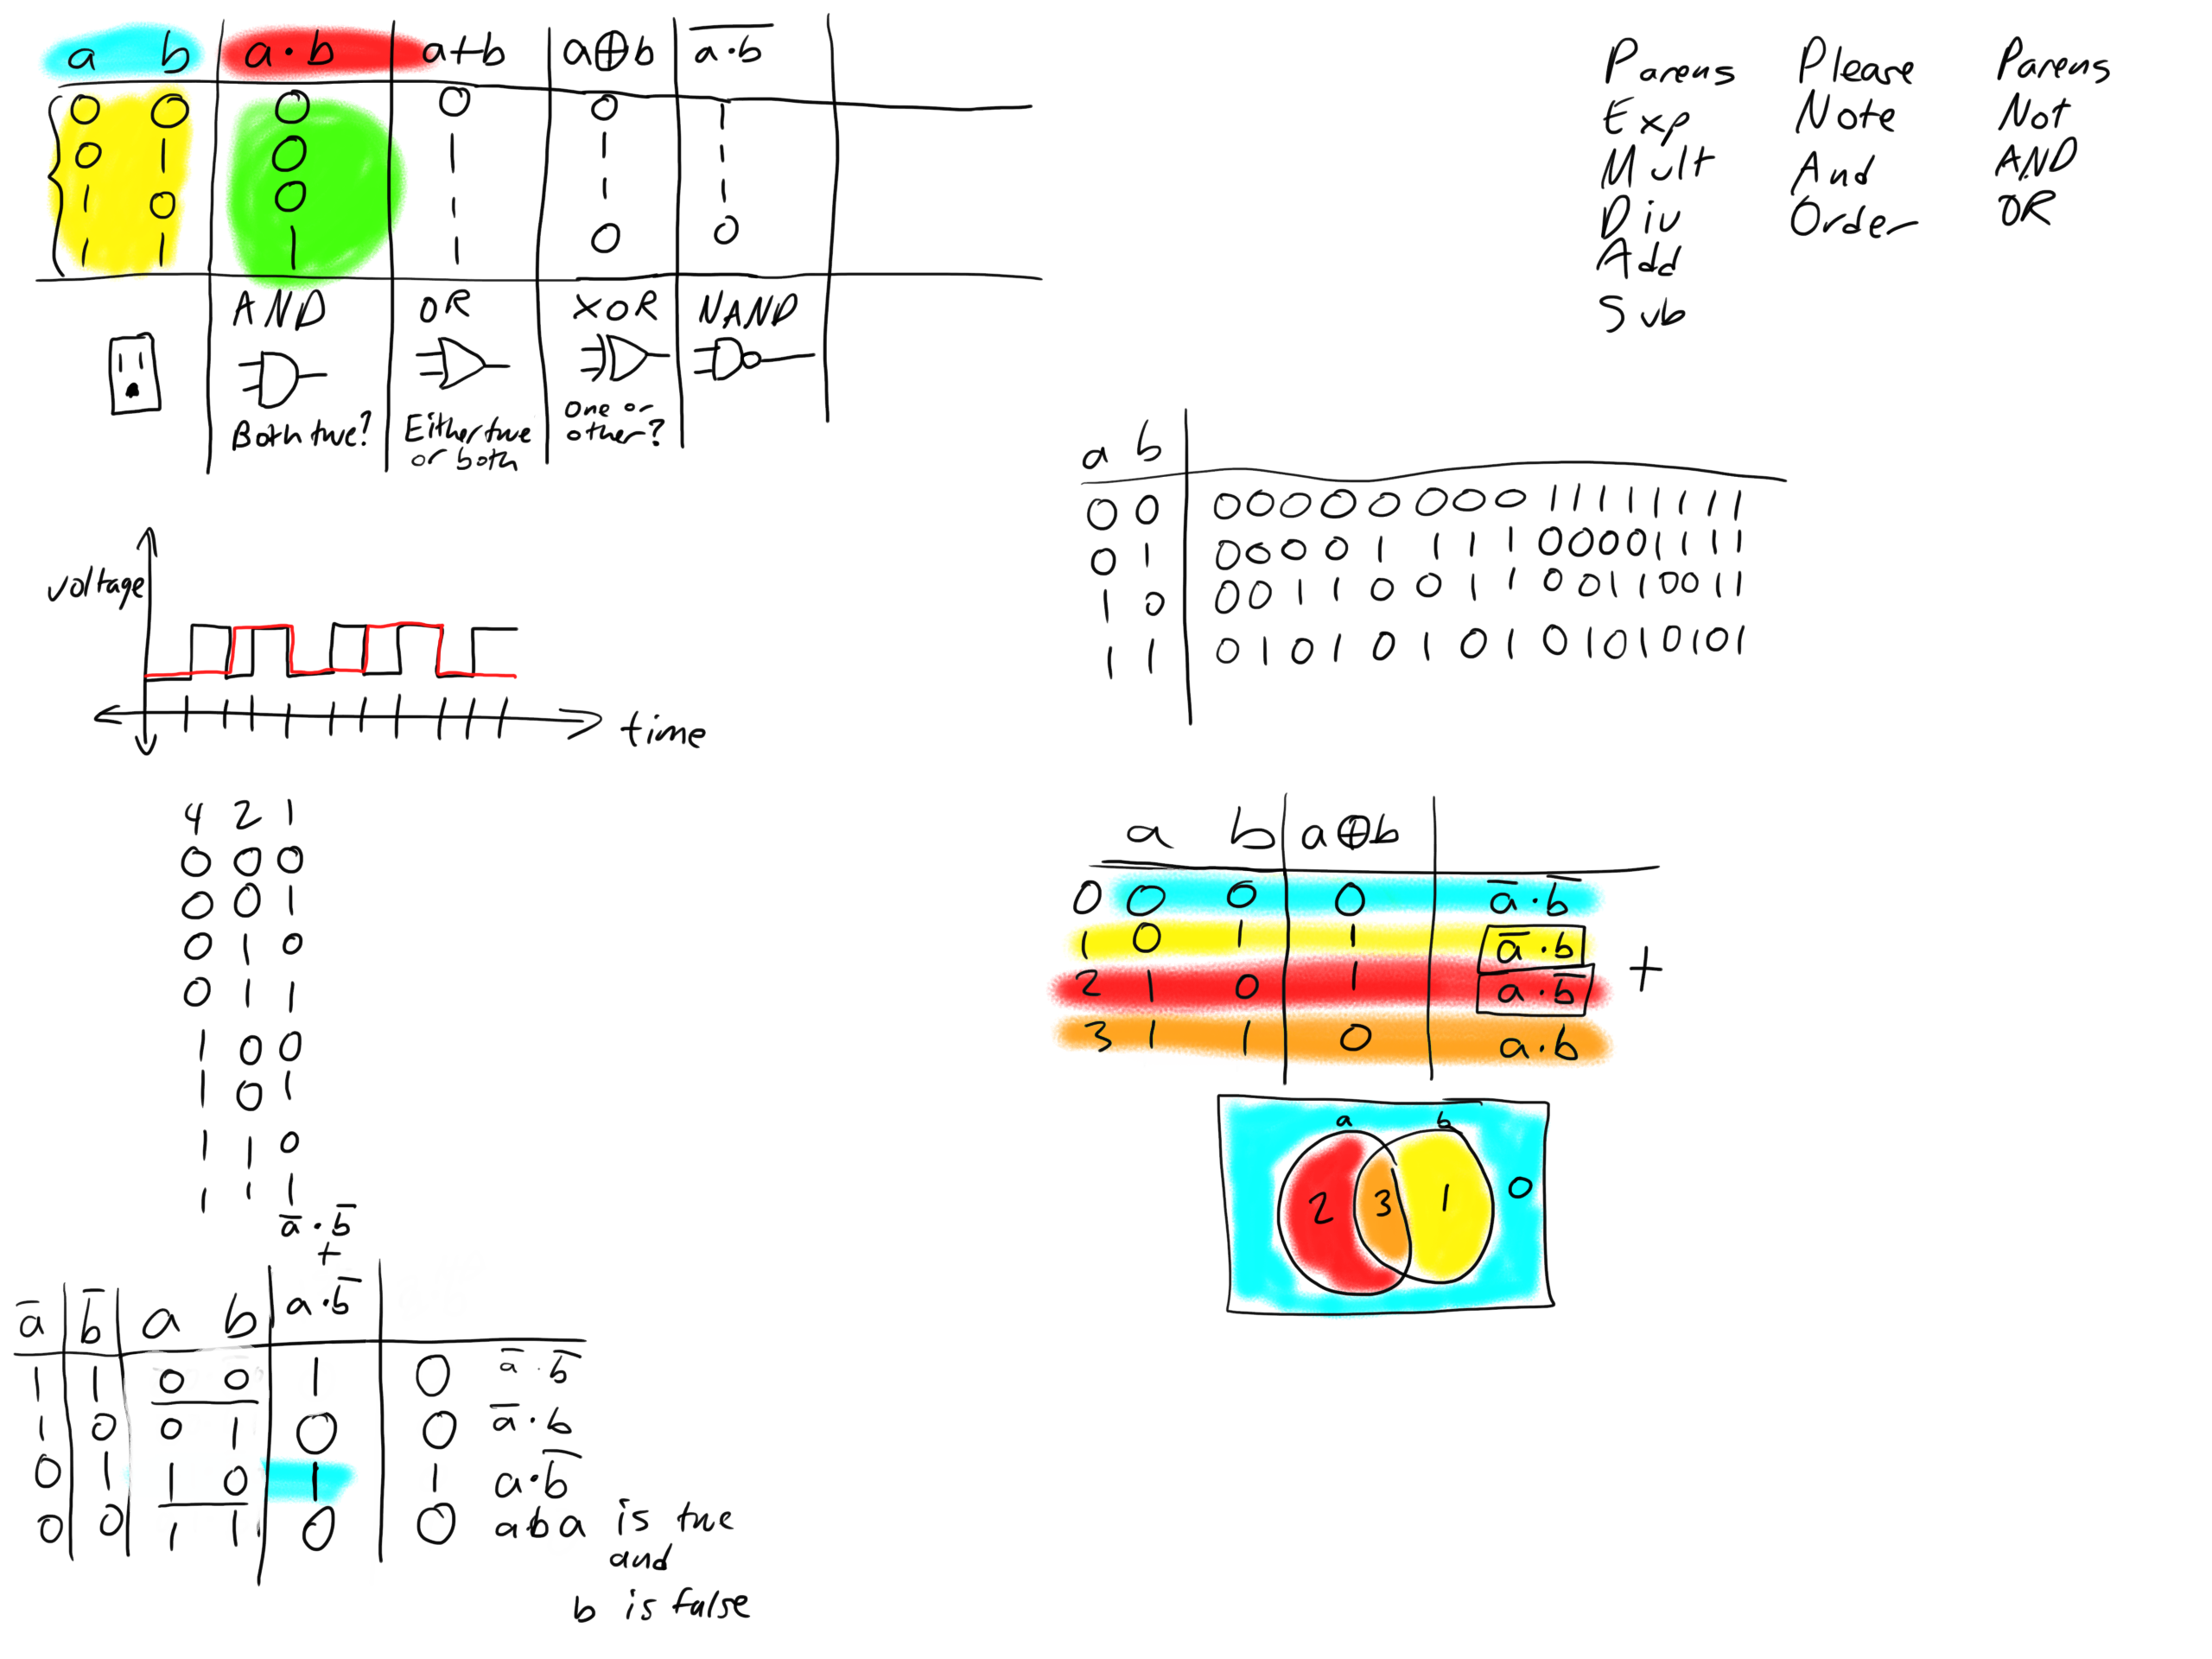 a b a·b a+b a⊕b a̅·̅b̅
0 0 0 0 0 1
0 1 0 1 1 1
1 0 0 1 1 1
1 1 1 1 0 0
AND OR XOR NAND
Both true? Either true or both One or other?
Parens Please Parens
Exp Note Not
Mult And AND
Div Order OR
Add
Sub
a b
0 0 0 0 0 0 0 0 0 0 1 1 1 1 1 1 1 1
0 1 0 0 0 0 1 1 1 1 0 0 0 0 1 1 1 1
1 0 0 0 1 1 0 0 1 1 0 0 1 1 0 0 1 1
1 1 0 1 0 1 0 1 0 1 0 1 0 1 0 1 0 1
voltage
time
4 2 1
0 0 0
0 0 1
0 1 0
0 1 1
1 0 0
1 0 1
1 1 0
1 1 1
a b a⊕b
0 0 0 0 a̅·b̅
1 0 1 1 a̅·b
+
2 1 0 1 a·b̅
3 1 1 0 a·b
a b
2 3 1 0
a̅·b̅
+
a̅ b̅ a b a·b̅
1 1 0 0 1 0 a̅·b̅
1 0 0 1 0 0 a̅·b
0 1 1 0 1 1 a·b̅
0 0 1 1 0 0 a b a is true
and
b is false